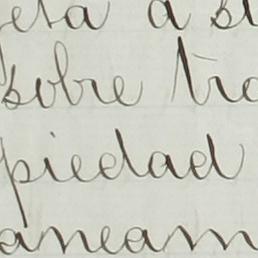 eta a s
sobre tra
piedad
aneam